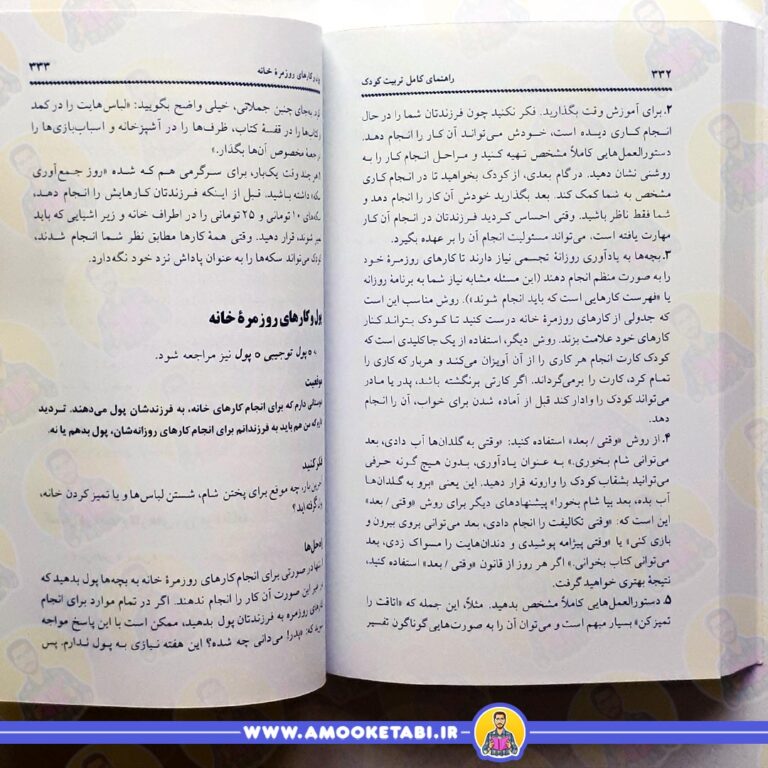 ۳۳۲
راهنمای کامل تربیت کودک
۲. برای آموزش وقت بگذارید. فکر نکنید چون فرزندتان شما را در حال
انجام کاری دیده است، خودش می‌تواند آن کار را انجام دهد.
دستورالعمل‌هایی کاملاً مشخص تهیه کنید و مراحل انجام کار را به
روشنی نشان دهید. در گام بعدی، از کودک بخواهید تا در انجام کاری
مشخص به شما کمک کند. بعد بگذارید خودش آن کار را انجام دهد و
شما فقط ناظر باشید. وقتی احساس کردید فرزندتان در انجام آن کار
مهارت یافته است، می‌تواند مسئولیت انجام آن را بر عهده بگیرد.
۳. بچه‌ها به یادآوری روزانهٔ تجسمی نیاز دارند تا کارهای روزمرهٔ خود
را به صورت منظم انجام دهند (این مسئله مشابه نیاز شما به برنامهٔ روزانه
یا «فهرست کارهایی است که باید انجام شوند»). روش مناسب این است
که جدولی از کارهای روزمرهٔ خانه درست کنید تا کودک بتواند کنار
کارهای خود علامت بزند. روش دیگر، استفاده از یک جاکلیدی است که
کودک کارت انجام هر کاری را از آن آویزان می‌کند و هربار که کاری را
تمام کرد، کارت را برمی‌گرداند. اگر کارتی برنگشته باشد، پدر یا مادر
می‌تواند کودک را وادار کند قبل از آماده شدن برای خواب، آن را انجام
دهد.
۴. از روش «وقتی / بعد» استفاده کنید: «وقتی به گلدان‌ها آب دادی، بعد
می‌توانی شام بخوری.» به عنوان یادآوری، بدون هیچ گونه حرفی
می‌توانید بشقاب کودک را وارونه قرار دهید. این یعنی «برو به گلدان‌ها
آب بده، بعد بیا شام بخور!» پیشنهادهای دیگر برای روش «وقتی / بعد»
این است که: «وقتی تکالیفت را انجام دادی، بعد می‌توانی بروی بیرون و
بازی کنی» یا «وقتی پیژامه پوشیدی و دندان‌هایت را مسواک زدی، بعد
می‌توانی کتاب بخوانی.» اگر هر روز از قانون «وقتی / بعد» استفاده کنید،
نتیجهٔ بهتری خواهید گرفت.
۵. دستورالعمل‌هایی کاملاً مشخص بدهید. مثلاً، این جمله که «اتاقت را
تمیز کن» بسیار مبهم است و می‌توان آن را به صورت‌هایی گوناگون تفسیر
کارهای روزمرهٔ خانه
۳۳۳
به‌جای چنین جملاتی، خیلی واضح بگویید: «لباس‌هایت را در کمد
کتاب‌ها را در قفسهٔ کتاب، ظرف‌ها را در آشپزخانه و اسباب‌بازی‌ها را
جعبهٔ مخصوص آن‌ها بگذار.»
هر چند وقت یک‌بار، برای سرگرمی هم که شده «روز جمع‌آوری
سکه» داشته باشید. قبل از اینکه فرزندتان کارهایش را انجام دهد،
سکه‌های ۱۰ تومانی و ۲۵ تومانی را در اطراف خانه و زیر اشیایی که باید
تمیز شوند، قرار دهید. وقتی همهٔ کارها مطابق نظر شما انجام شدند،
کودک می‌تواند سکه‌ها را به عنوان پاداش نزد خود نگه‌دارد.
پول و کارهای روزمرهٔ خانه
پول توجیبی ○ پول نیز مراجعه شود.
موقعیت
دوستانی دارم که برای انجام کارهای خانه، به فرزندشان پول می‌دهند. تردید
دارم که من هم باید به فرزندانم برای انجام کارهای روزانه‌شان، پول بدهم یا نه.
فکر کنید
آخرین بار، چه موقع برای پختن شام، شستن لباس‌ها و یا تمیز کردن خانه،
گرفته‌اید؟
راه‌حل‌ها
تنها در صورتی برای انجام کارهای روزمرهٔ خانه به بچه‌ها پول بدهید که
غیر این صورت آن کار را انجام ندهند. اگر در تمام موارد برای انجام
کارهای روزمره به فرزندتان پول بدهید، ممکن است با این پاسخ مواجه
شوید که: «پدر! می‌دانی چه شده؟ این هفته نیازی به پول ندارم. پس
WWW.AMOOKETABI.IR